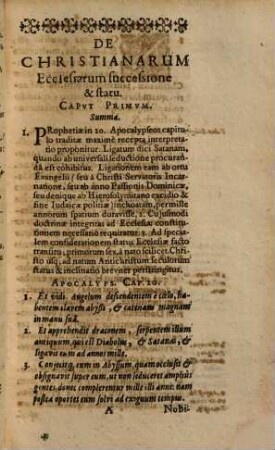 DE
CHRISTIANARUM
Ecclesiarum successione
& statu.
CAPVT PRIMVM.
Summa.
1. PRophetiæ in 20. Apocalypseos capitu-
lo traditæ maximè recepta interpreta-
tio proponitur. Ligatum dici Satanam,
quando ab universali seductione procuran-
dâ est cohibitus. Ligationem eam ab ortu
Evangelij, seu à Christi Servatoris Incar-
natione, seu ab anno Passionis Dominicæ,
seu denique ab Hierosolymitano excidio &
fine Judaicæ politiæ inchoatam, per mille
annorum spatium duravisse. 2. Cujusmodi
doctrinæ integritas ad Ecclesiæ constituti-
onem necessariò requiratur. 3. Ad specia-
lem considerationem status Ecclesiæ facto
transitu, primorum sex à nato scilicet Chri-
sto usq; ad natum Antichristum seculorum
status & inclinatio breviter perstringitur.
APOCALYPS. CAP. 20.
1. Et vidi Angelum descendentem è cælo, ha-
bentem clavem abyssi, & catenam magnam
in manu suâ.
2. Et apprehendit draconem, serpentem illum
antiquum, qui est Diabolus, & Satanas, &
ligavit eum ad annos mille.
3. Conjecitq; eum in Abyssum, quam occlusit &
obsignavit super eum, ut non seduceret ampliùs
gentes, donec complerentur mille illi anni: nam
postea oportet eum solvi ad exiguum tempus.
A Nobi-